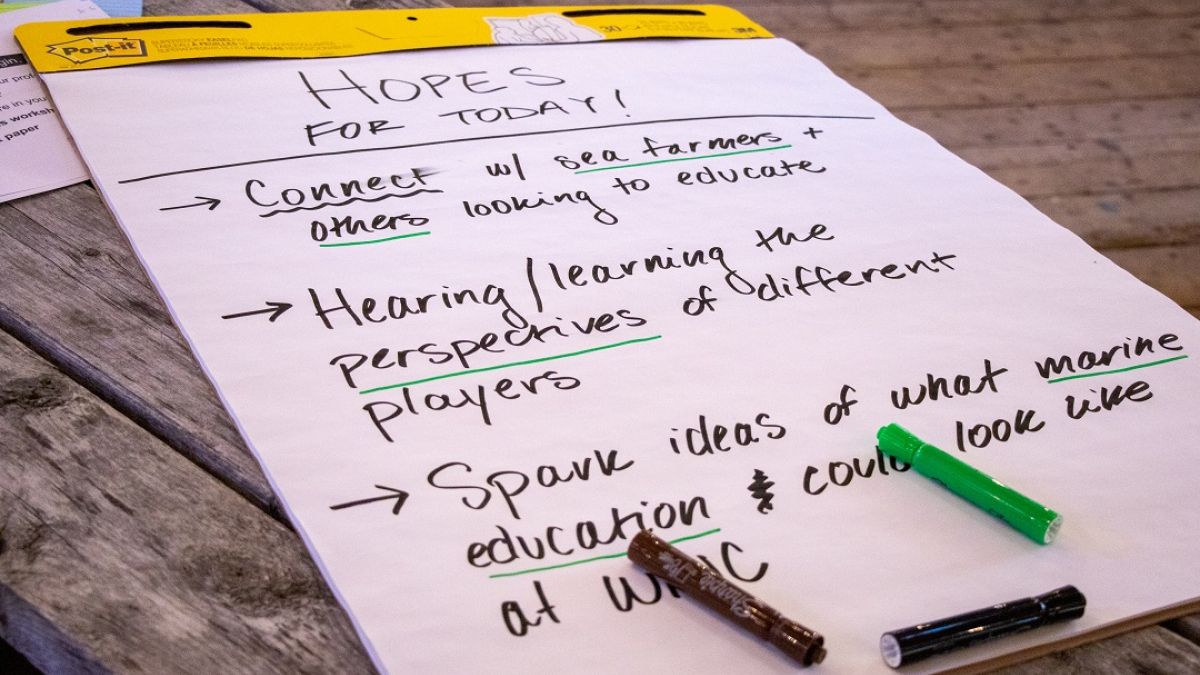 Post-it
30
3M
HOPES
FOR TODAY!
→ Connect w/ sea farmers +
others looking to educate
→ Hearing/learning the
perspectives of different
players
→ Spark ideas of what marine
education could look like
at
Sharpie
ur prof
re in you
s worksh
paper